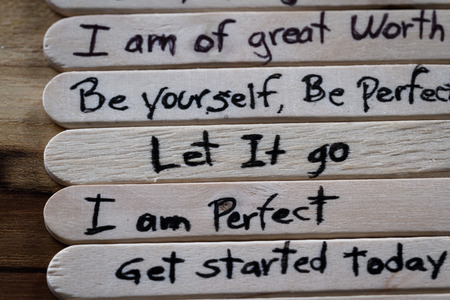 I am of great Worth
Be yourself, Be Perfect
Let It go
I am Perfect
Get started Today